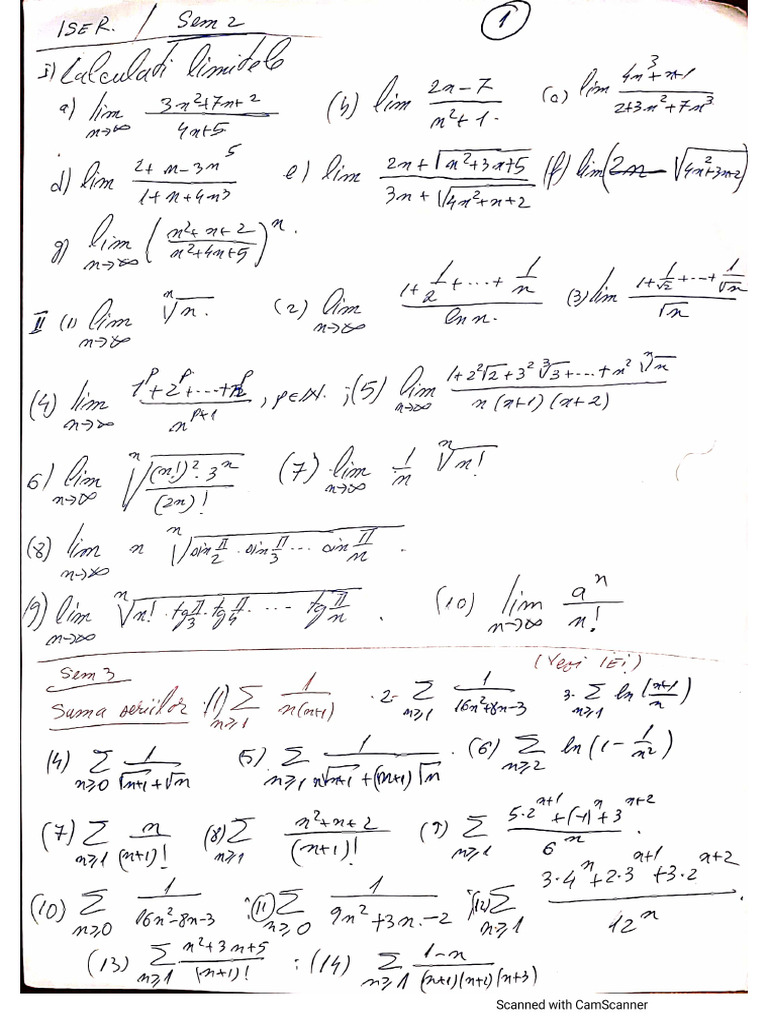 1SER. / Sem 2 (1)
I) Calculati limitele
a) lim n→∞ (3n²+7n+2)/(4n+5) (b) lim (2n-7)/(n²+1) (c) lim (4n³+n+1)/(2+3n²+7n³)
d) lim (2+n-3n⁵)/(1+n+4n³) e) lim (2n+√(n²+3n+5))/(3n+√(4n²+n+2)) (f) lim(2n-√(4n²+3n+2))
g) lim n→∞ ((n²+n+2)/(n²+4n+5))ⁿ.
II (1) lim n→∞ ⁿ√n. (2) lim n→∞ (1+1/2+...+1/n)/(ln n). (3) lim (1+1/√2+...+1/√n)/√n
(4) lim n→∞ (1ᵖ+2ᵖ+...+nᵖ)/n^(p+1), p∈N. ; (5) lim n→∞ (1+2²√2+3²∛3+...+n² ⁿ√n)/(n(n+1)(n+2))
6) lim n→∞ ⁿ√((n!)²·3ⁿ/(2n)!) (7) lim n→∞ 1/n ⁿ√n!
(8) lim n→∞ n ⁿ√(sin π/2 · sin π/3 ... sin π/n).
(9) lim n→∞ ⁿ√(n! · tg π/3 · tg π/4 · ... tg π/n). (10) lim n→∞ aⁿ/n!
Sem 3 (Vezi IEi)
Suma seriilor (1) ∑ n≥1 1/(n(n+1)) · 2. ∑ n≥1 1/(16n²+8n-3) 3. ∑ n≥1 ln((n+1)/n)
(4) ∑ n≥0 1/(√(n+1)+√n) (5) ∑ n≥1 1/(n√(n+1)+(n+1)√n) · (6) ∑ n≥2 ln(1-1/n²)
(7) ∑ n≥1 n/(n+1)! (8) ∑ n≥1 (n²+n+2)/(n+1)! (9) ∑ n≥1 (5·2^(n+1)+(-1)ⁿ+3^(n+2))/6ⁿ.
(10) ∑ n≥0 1/(16n²-8n-3) ; (11) ∑ n≥0 1/(9n²+3n-2) ; (12) ∑ n≥1 (3·4ⁿ+2·3^(n+1)+3·2^(n+2))/12ⁿ.
(13) ∑ n≥1 (n²+3n+5)/(n+1)! ; (14) ∑ n≥1 (1-n)/((n+1)(n+2)(n+3))
Scanned with CamScanner